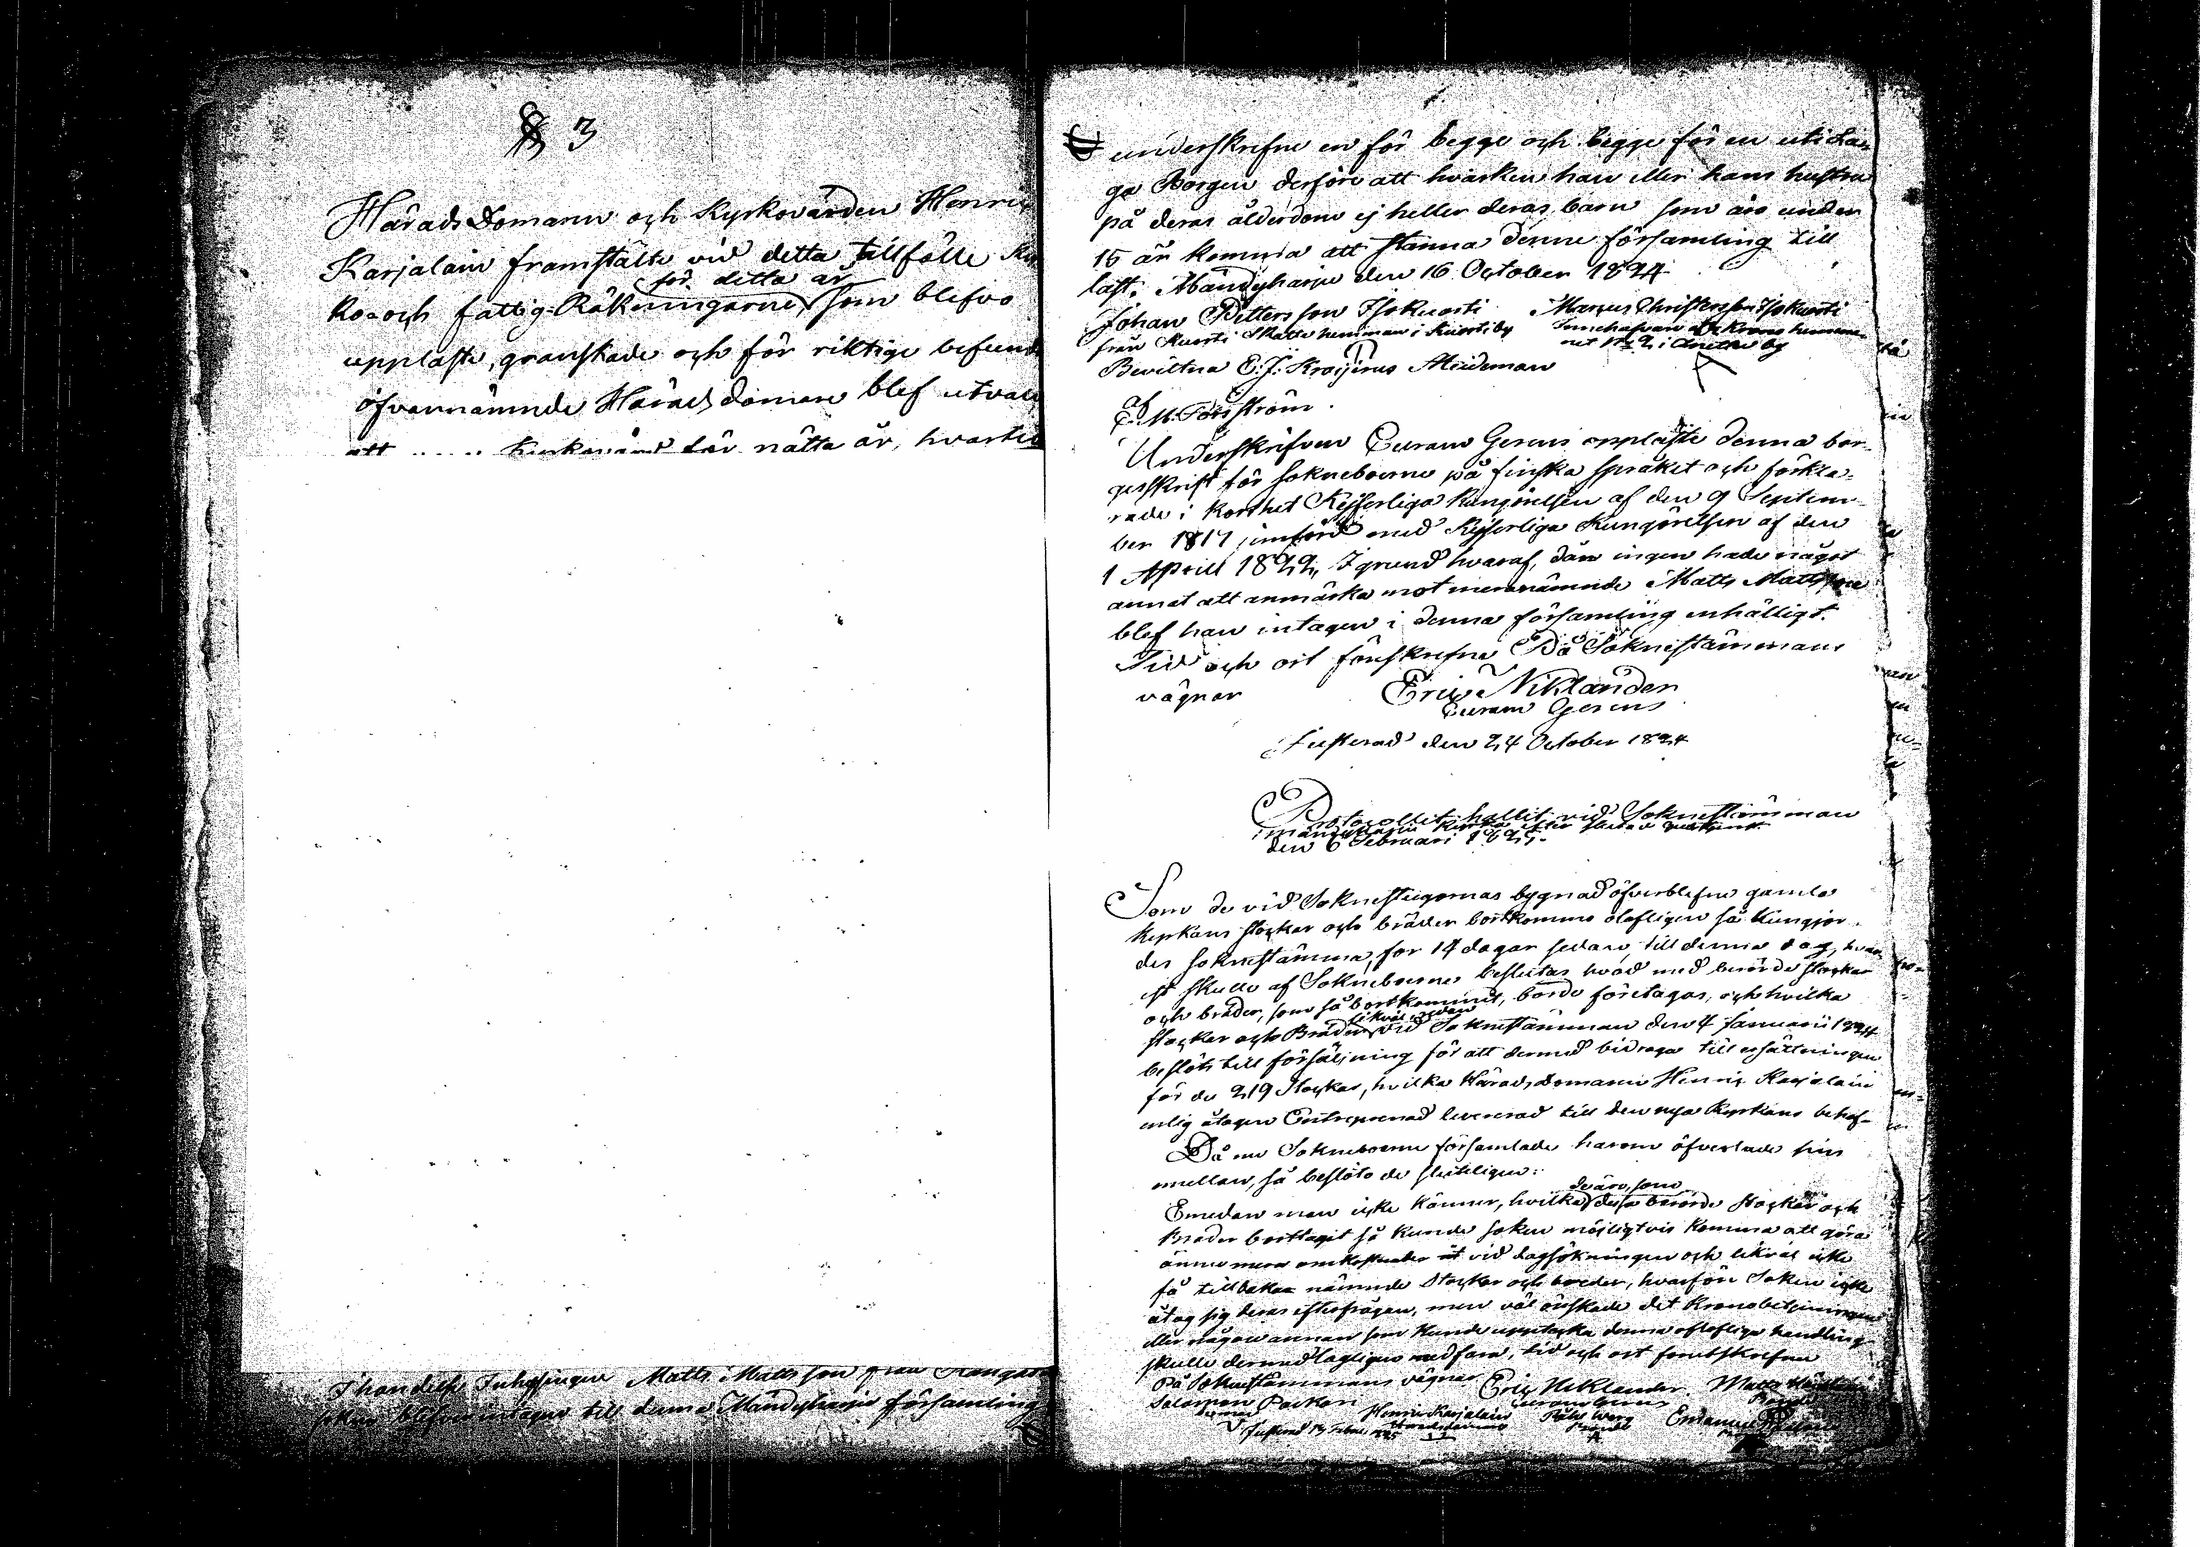 § 3
Härads Domaren och Kyrkovärden Henric
Karjalain framstälte vid detta tillfälle Kyr
för detta år
ko- och fattig-Räkningarne, som blefvo
uppläste, granskade och för riktige befundne
öfvannämnde Häradsdomare blef utvald
att Kyrkovärd för nätta år, hvartil
Inhysingen Matts Mattsson från Kangas
till denna Mändyharju församling
underskrefne en för begge och begge för en uti La-
ga Borgen derföre att hvarken han eller hans hustru
på deras ålderdom ej heller deras barn som äro under
15 år komma att stanna denne församling till
last. Mändyharju den 16 October 1824.
Johan Pettersson Isokuorti Marcus Christersson Isokuorti
från Kuorti Skatte hemman i Kuortiby
Bevittna E. J. Kroijerus Mideman
af
E. M. Forsström.
Underskrifven Curam Gerens uppläste denna bor-
gesskrift för soknboerne på finska språket och förkla-
rade i korthet Kejserliga Kungörelsen af den 9 Septem-
ber 1817 jemförd med Kejserliga Kungörelsen af den
1 Aprill 1822, I grund hvaraf, dån ingen hade något
annat att anmärka mot mernämnde Matts Mattsson
blef han intagen i denna församling enhälligt.
Tid och ort förrskrefne På Soknestämmans
vägnar Eric Niklander
Curam Gerens
Justerad den 24 October 1824
Protocollet hallit vid Soknestämman
i Mändyharju Kyrka efter slutad gudstjenst
den 6 Februari 1825.
Som de vid Soknestugornas bygnad öfverblefne gamla
Kyrkans stockar och bräder bortkommo olofligen så kungjor-
des soknestämma, för 14 dagar sedan, till denna dag, hvar-
est skulle af Sokneboerne beslutas hvad med berörde stockar
och bräder, som så bortkommit, borde företagas, och hvilka
likväl redan
stockar och Bräder vid Soknestämman den 4 Januarii 1824
beslöts till försäljning för att dermed bidraga till ersättningen
för de 219 Stockar, hvilka Häradsdomaren Henric Karjalain
enlig åtagen Entreprenad levererad till den nya Kyrkans behof.
Då nu Sokneboerne församlade härom öfverlade sins
emellan, så beslöto de slutligen:
de äro, som
Emedan man icke känner, hvilka dessa berörde Stockar och
Bräder borttagit så kunde soknen möjligtvis komma att göra
ännu mera omkostnader vid lagsökningen och likväl icke
få tillbaka nämnde Stockar och breder, hvarföre Soknen icke
åtog sig deras efterfrågan, men väl önskade det Kronobetjenningen
eller någon annan som kunde upptäcka denna oflofliga handling
skulle dermed lagligen medfara, tid och ort förutskrefne
På Soknestämmans vägnar Eric Niklander
Curam Gerens
Salomon Parkon Henric Karjalain
Häradsdomare
Emanuel